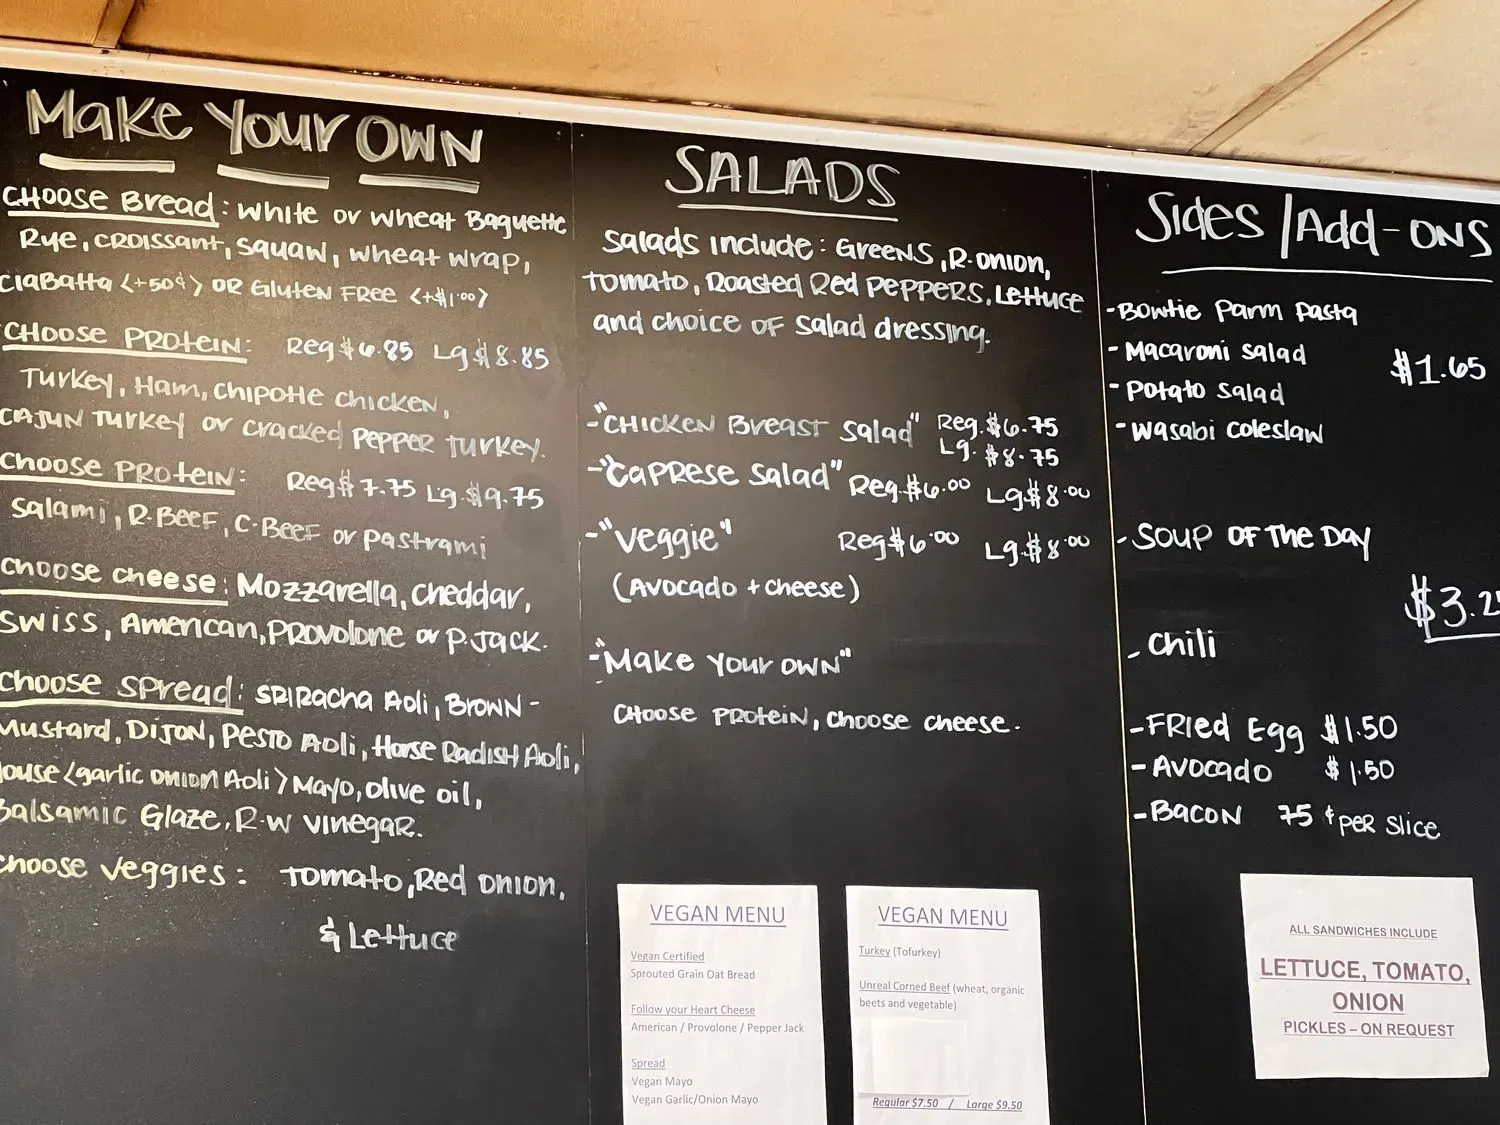 Make Your Own
Choose Bread: White or Wheat Baguette
Rye, Croissant, Squaw, Wheat Wrap,
Ciabatta <+50¢> or Gluten Free <+$1.00>
Choose Protein: Reg $6.85 Lg $8.85
Turkey, Ham, Chipotle Chicken,
Cajun Turkey or Cracked Pepper Turkey.
Choose Protein: Reg $7.75 Lg. $9.75
Salami, R-Beef, C-Beef or Pastrami
Choose Cheese: Mozzarella, Cheddar,
Swiss, American, Provolone or P.Jack.
Choose Spread: Sriracha Aoli, Brown-
Mustard, Dijon, Pesto Aoli, Horse Radish Aoli,
House <garlic onion Aoli> Mayo, Olive oil,
Balsamic Glaze, R-W Vinegar.
Choose Veggies: Tomato, Red Onion,
& Lettuce
SALADS
Salads Include: Greens, R-onion,
Tomato, Roasted Red Peppers, Lettuce
and choice of salad dressing.
-"Chicken Breast Salad" Reg. $6.75
Lg. $8.75
-"Caprese Salad" Reg. $6.00 Lg $8.00
-"Veggie" Reg $6.00 Lg. $8.00
(Avocado + Cheese)
-"Make Your Own"
Choose Protein, Choose Cheese.
VEGAN MENU
Vegan Certified
Sprouted Grain Oat Bread
Follow your Heart Cheese
American / Provolone / Pepper Jack
Spread
Vegan Mayo
Vegan Garlic/Onion Mayo
VEGAN MENU
Turkey (Tofurkey)
Unreal Corned Beef (wheat, organic
beets and vegetable)
Regular $7.50 / Large $9.50
Sides / Add-ons
-Bowtie Parm Pasta
-Macaroni Salad $1.65
-Potato Salad
-Wasabi Coleslaw
-Soup of the Day
$3.2
-Chili
-Fried Egg $1.50
-Avocado $1.50
-Bacon 75¢ per slice
ALL SANDWICHES INCLUDE
LETTUCE, TOMATO,
ONION
PICKLES – ON REQUEST